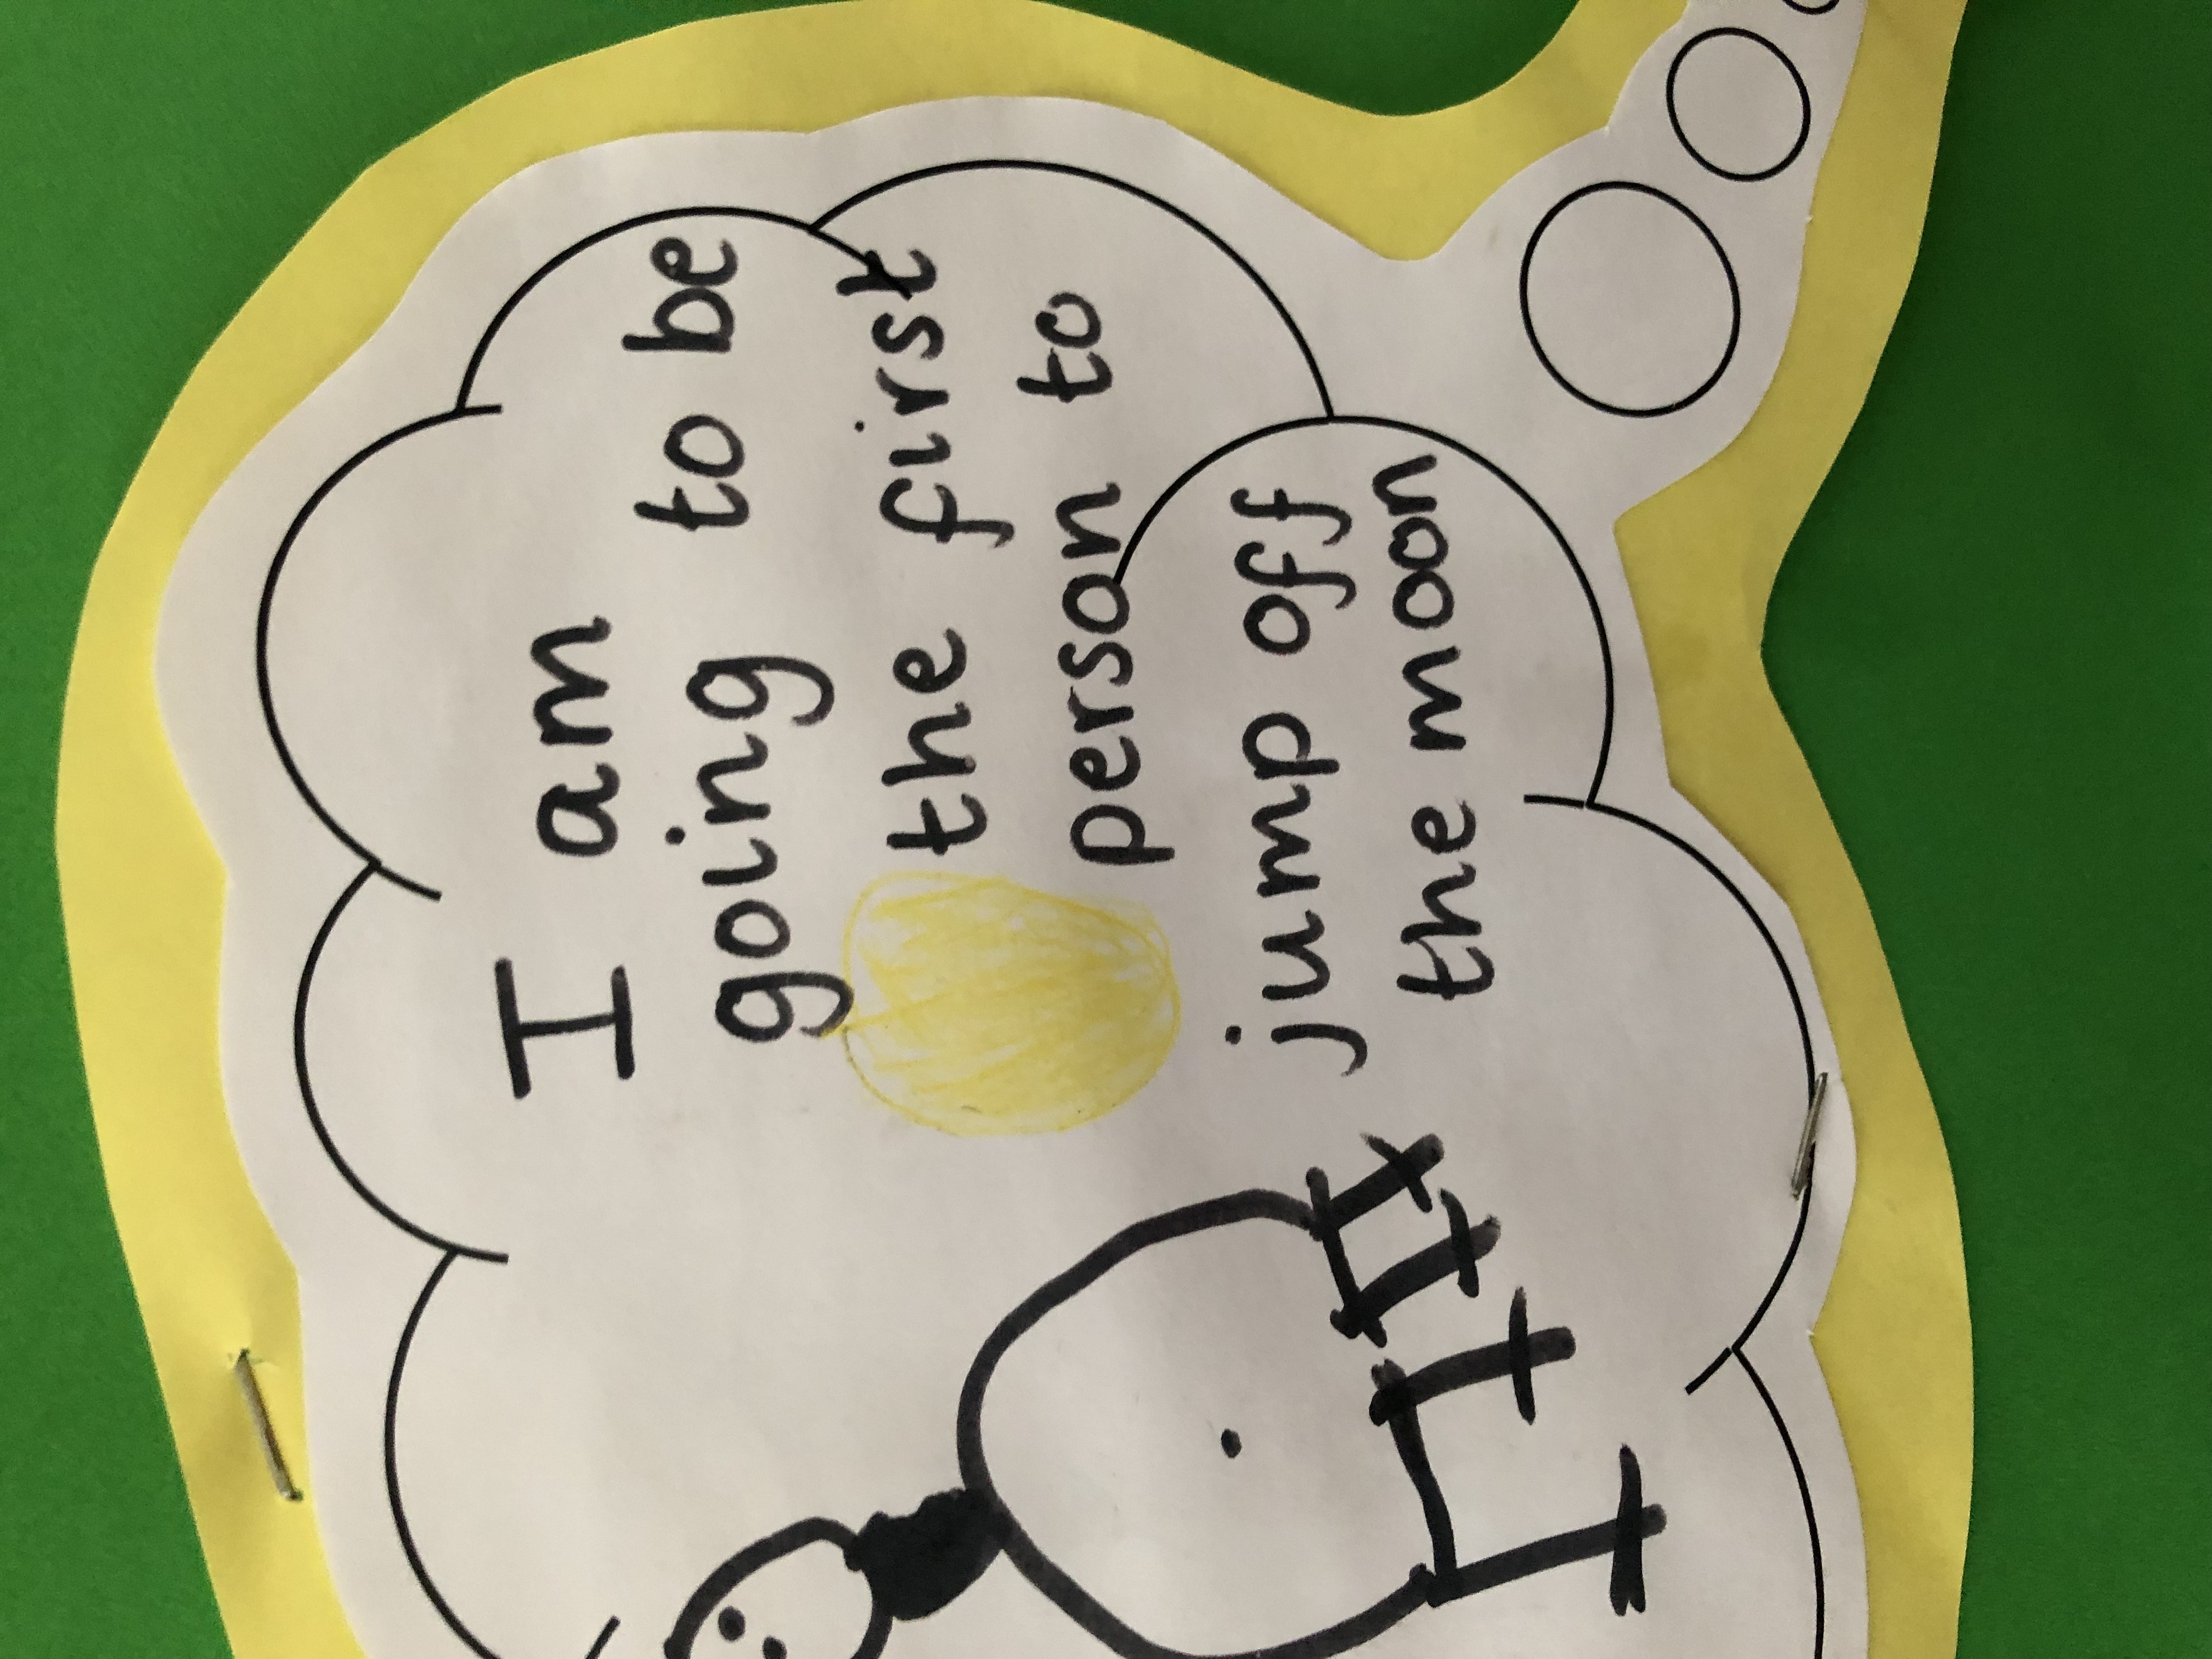 I am
going to be
the first
person to
jump off
the moon